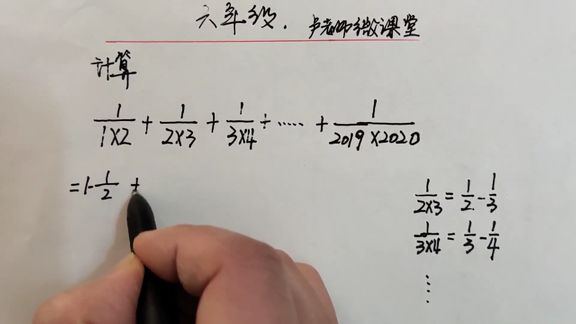 六年级. 卢老师微课堂
计算
1/1×2 + 1/2×3 + 1/3×4 + ...... + 1/2019×2020
=1-1/2 +
1/2×3 = 1/2 - 1/3
1/3×4 = 1/3 - 1/4
⋮